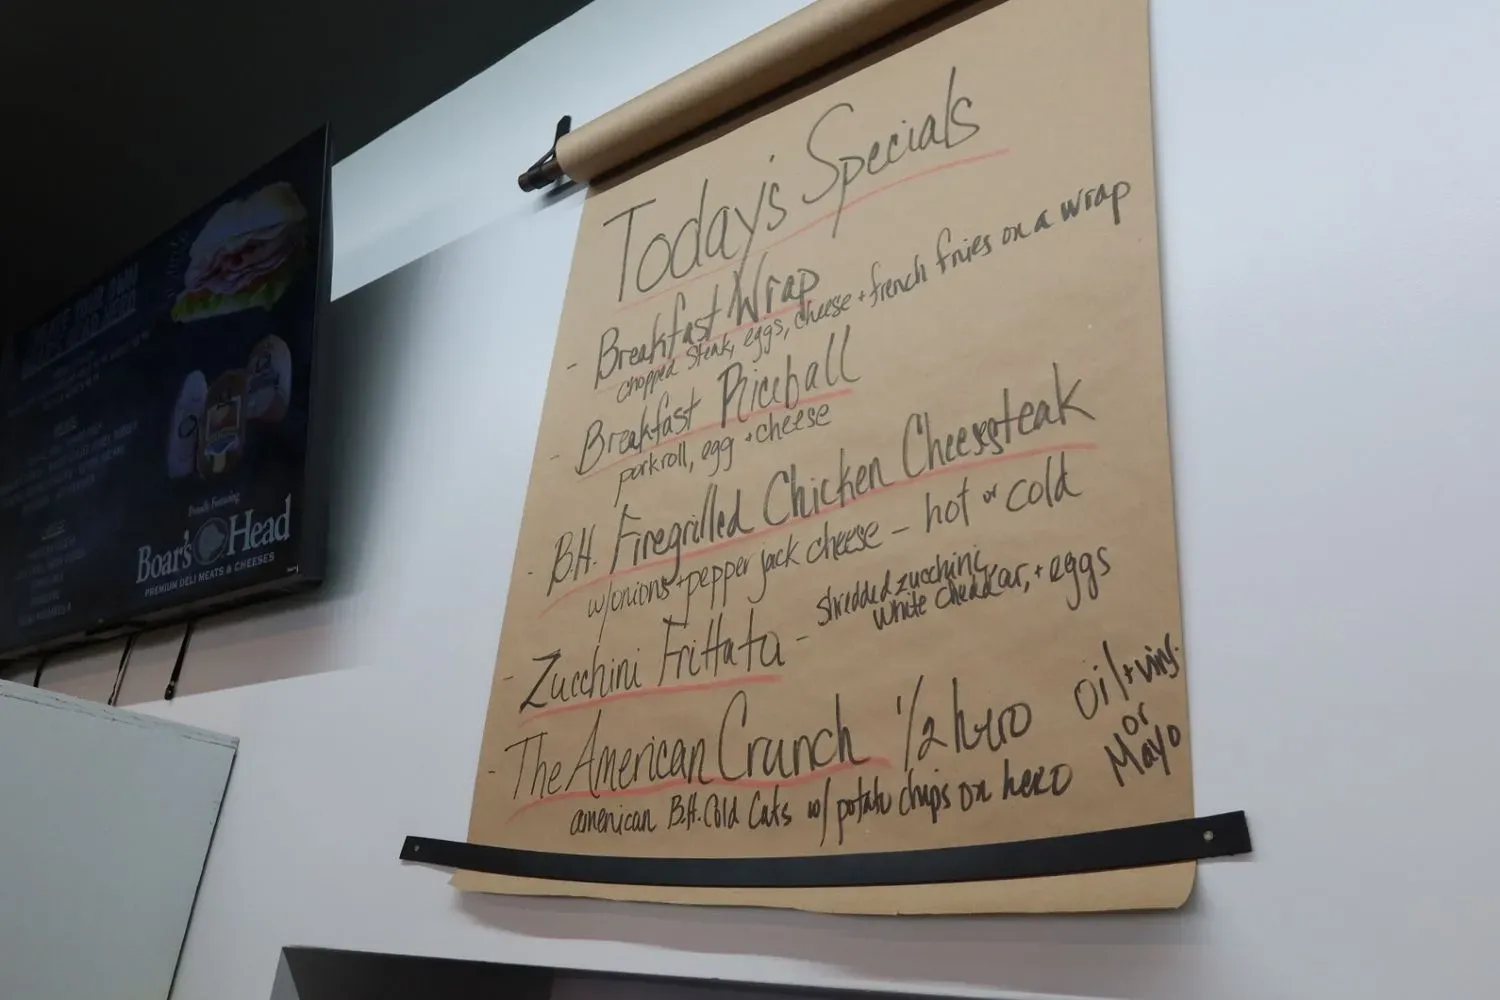 Today's Specials
- Breakfast Wrap
chopped steak, eggs, cheese + french fries on a wrap
- Breakfast Riceball
porkroll, egg + cheese
- B.H. Firegrilled Chicken Cheesesteak
w/onions + pepper jack cheese - hot or cold
- Zucchini Frittata - shredded zucchini,
white cheddar, + eggs
- The American Crunch 1/2 hero
american B.H. Cold Cuts w/ potato chips on hero
oil + ving.
or
Mayo
Proudly Featuring
Boar's Head
PREMIUM DELI MEATS & CHEESES